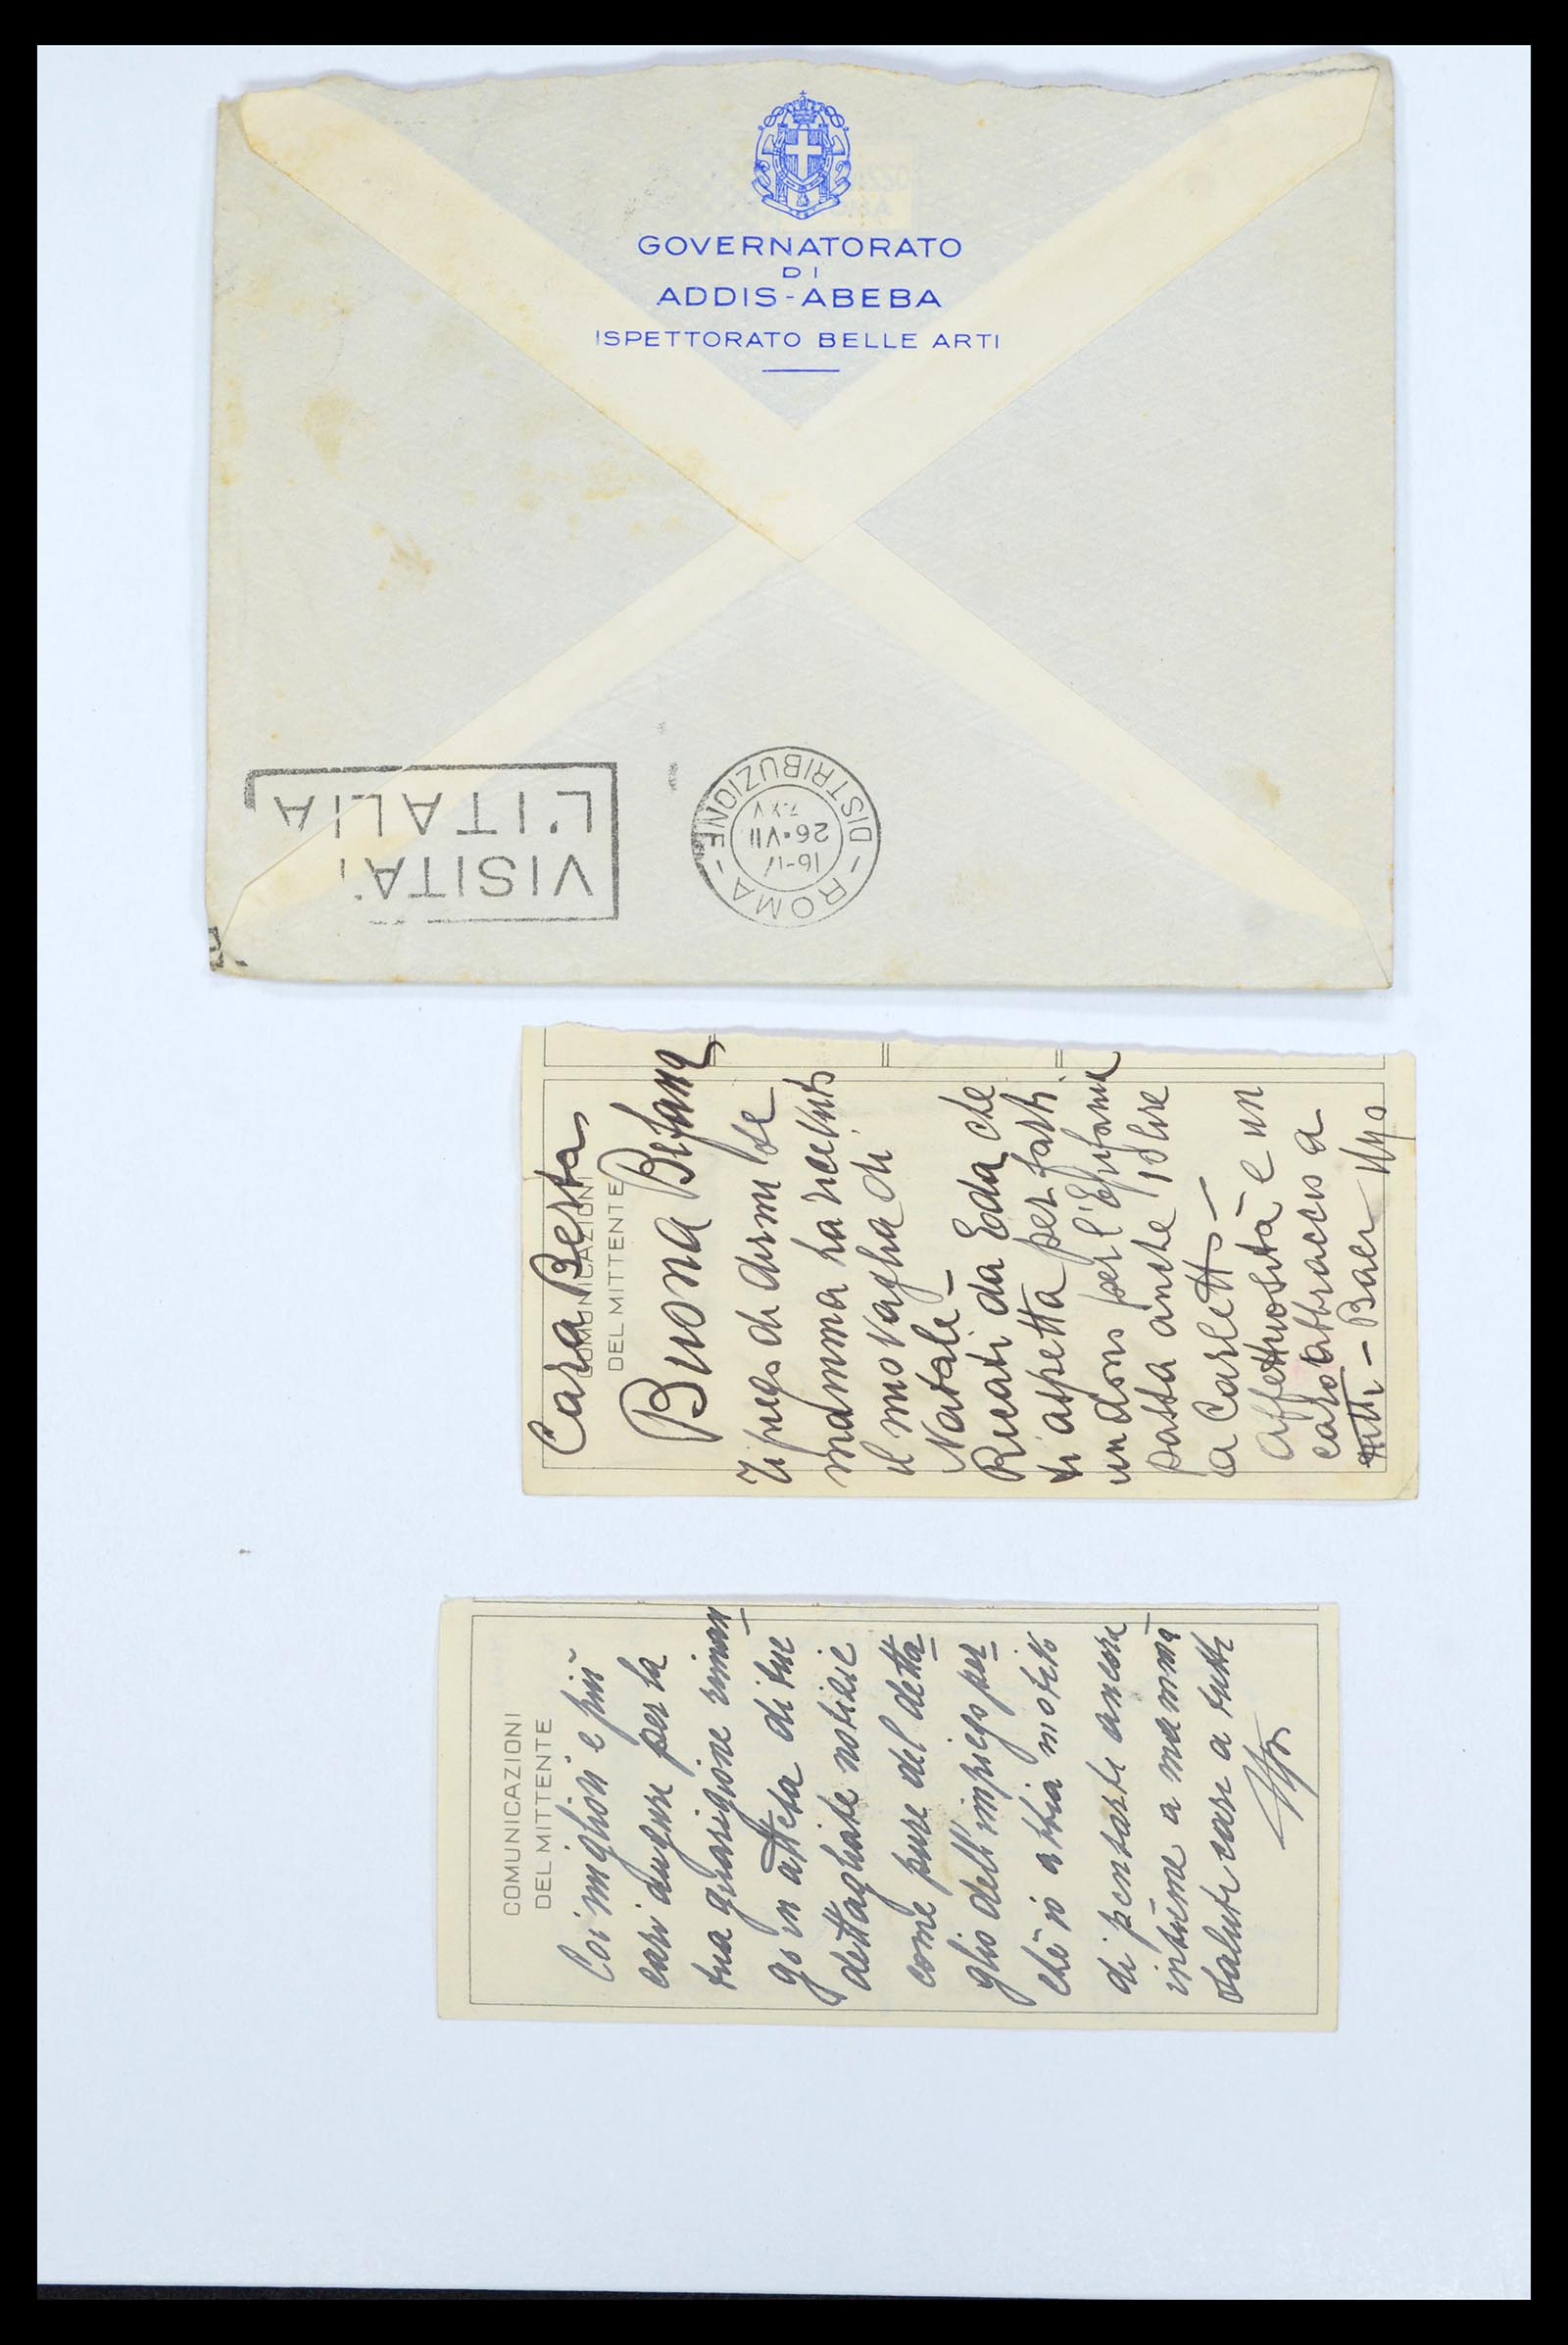 GOVERNATORATO
DI
ADDIS-ABEBA
ISPETTORATO BELLE ARTI
VISITA,
L'ITALIA
ROMA - DISTRIBUZIONE -
16-17
26·VII
COMUNICAZIONI
DEL MITTENTE
Cara Berta
Buona Befana
Ti prego di dirmi se
mamma ha ricevuto
il mio vaglia di
Natale -
Recati da Eda che
ti aspetta per farti
un dono per l'Epifania
passa anche
a Carletto -
Affettuosità e un
caro abbraccio a
tutti - Baci Ugo
COMUNICAZIONI
DEL MITTENTE
Coi migliori e più
cari auguri per la
tua guarigione riman
go in attesa di tue
dettagliate notizie
come pure del detta
glio dell'impiego per
chè io abbia motivo
di pensarti ancora
insieme a mamma
Saluti cari a tutti
Ugo